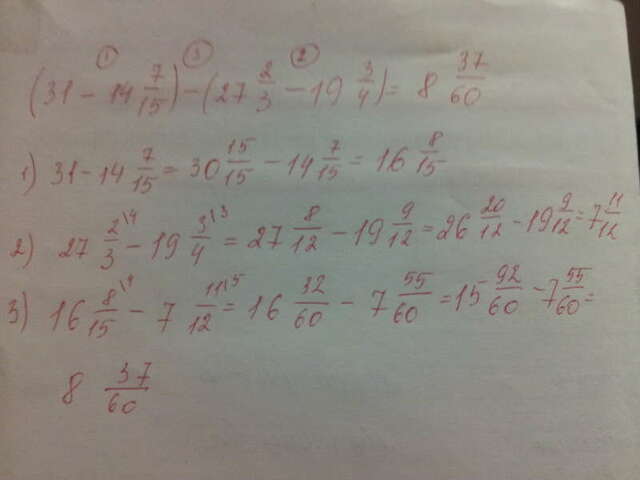 ① ③ ②
(31 - 14 7/15) - (27 2/3 - 19 3/4) = 8 37/60
1) 31 - 14 7/15 = 30 15/15 - 14 7/15 = 16 8/15
2) 27 2/3 \4 - 19 3/4 \3 = 27 8/12 - 19 9/12 = 26 20/12 - 19 9/12 = 7 11/12
3) 16 8/15 \4 - 7 11/12 \5 = 16 32/60 - 7 55/60 = 15 92/60 - 7 55/60 =
8 37/60